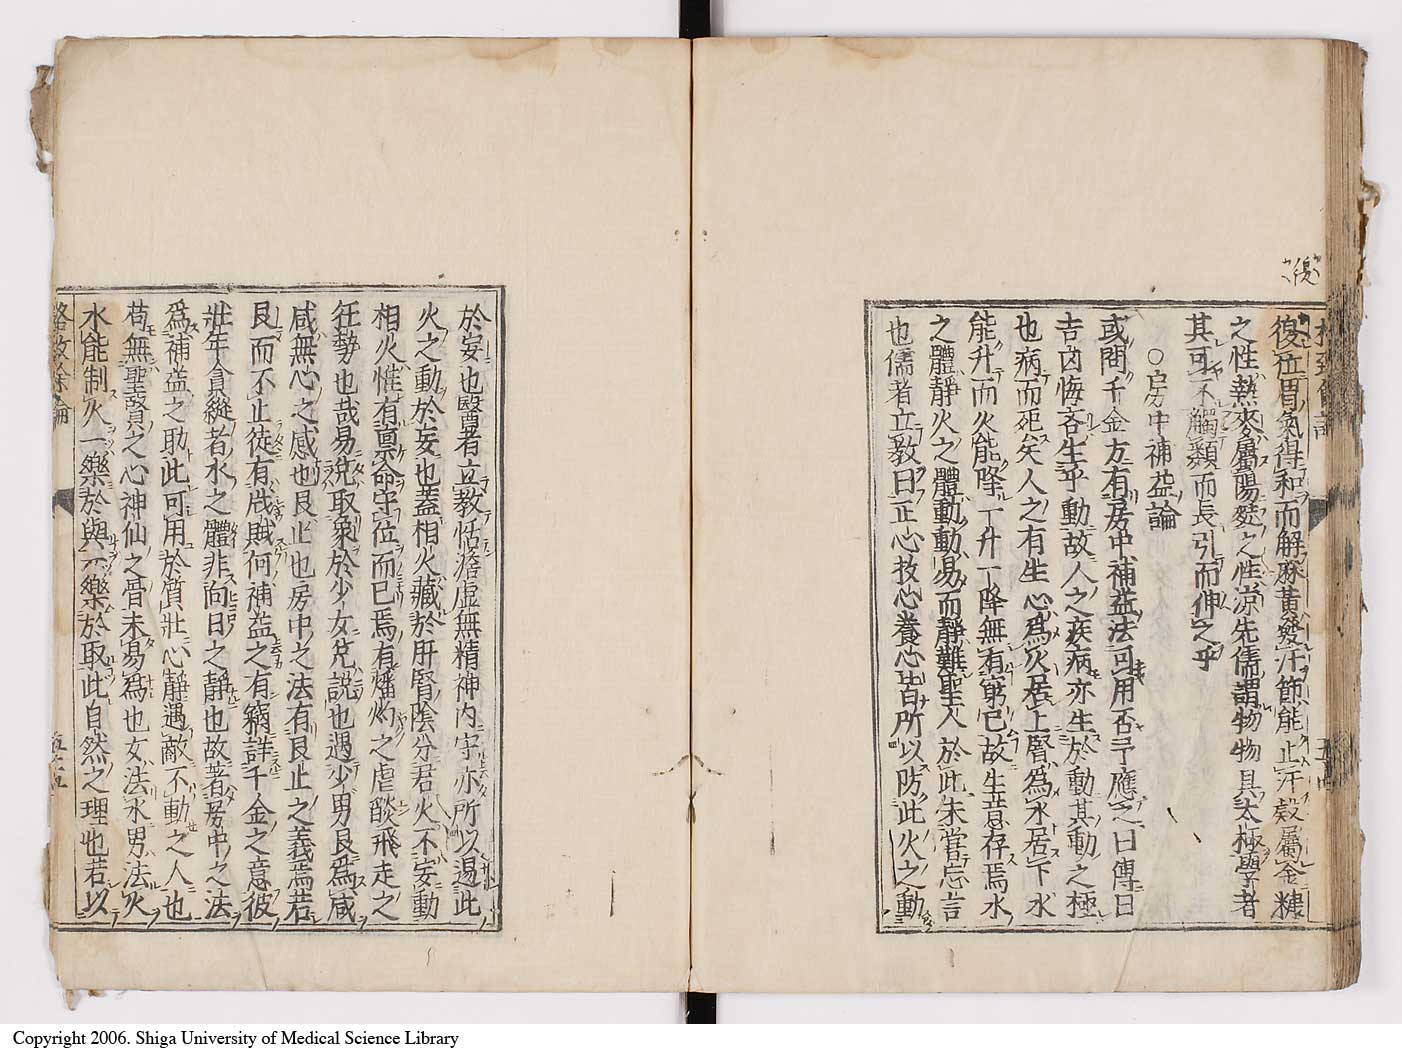 復位胃氣得和而解麻黃發汗節能止汗穀屬金糠
之性熱麥屬陽麩之性凉先儒謂物物具太極學者
其可不觸類而長引而伸之乎
○房中補益論
或問千金方有房中補益法可用否予應之曰傳曰
吉凶悔吝生乎動故人之疾病亦生於動其動之極
也病而死矣人之有生心爲火居上腎爲水居下水
能升而火能降一升一降無有窮已故生意存焉水
之體靜火之體動動易而靜難聖人於此未嘗忘言
也儒者立教曰正心收心養心皆所以防此火之動
於妄也醫者立教恬澹虛無精神内守亦所以遏此
火之動於妄也蓋相火藏於肝腎陰分君火不妄動
相火惟有禀命守位而已焉有燔灼之虐㷔飛走之
狂勢也哉易兊取象於少女兊說也遇少男艮爲咸
咸無心之感也艮止也房中之法有艮止之義焉若
艮而不止徒有戕賊何補益之有竊詳千金之意彼
壯年貪縱者水之體非向日之靜也故著房中之法
爲補益之助此可用於質壯心靜遇敵不動之人也
苟無聖賢之心神仙之骨未易爲也女法水男法火
水能制火一樂於與一樂於取此自然之理也若以
格致餘論
Copyright 2006. Shiga University of Medical Science Library